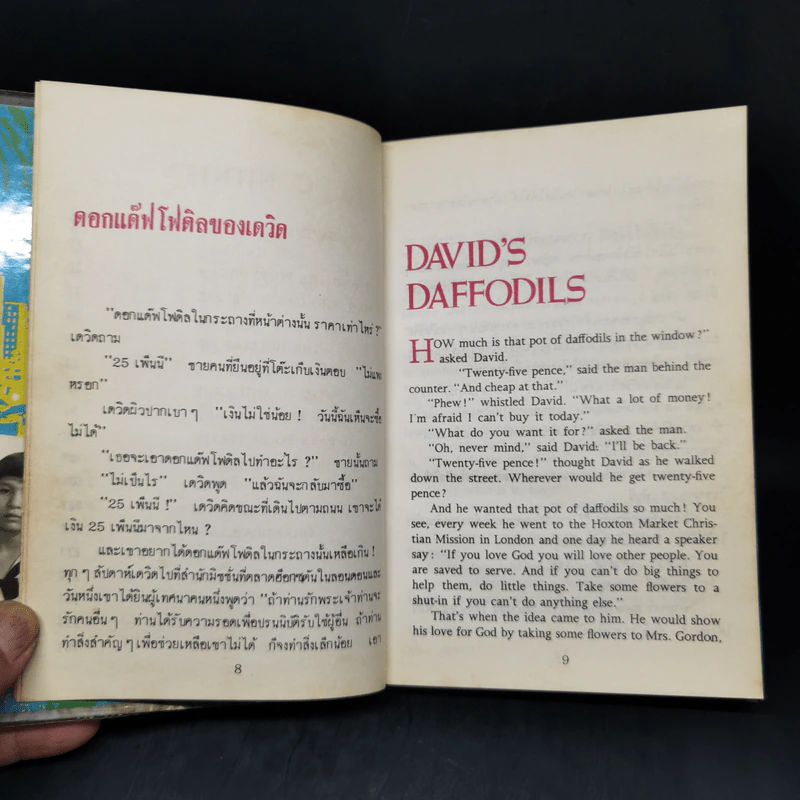 ดอกแด๊ฟโฟดิลของเดวิด
"ดอกแด๊ฟโฟดิลในกระถางที่หน้าต่างนั้น ราคาเท่าไหร่ ?"
เดวิดถาม
"25 เพ็นนี" ชายคนที่ยืนอยู่ที่โต๊ะเก็บเงินตอบ "ไม่แพง
หรอก"
เดวิดผิวปากเบา ๆ "เงินไม่ใช่น้อย ! วันนี้ฉันเห็นจะซื้อ
ไม่ได้"
"เธอจะเอาดอกแด๊ฟโฟดิลไปทำอะไร ?" ชายนั้นถาม
"ไม่เป็นไร" เดวิดพูด "แล้วฉันจะกลับมาซื้อ"
"25 เพ็นนี !" เดวิดคิดขณะที่เดินไปตามถนน เขาจะได้
เงิน 25 เพ็นนีมาจากไหน ?
และเขาอยากได้ดอกแด๊ฟโฟดิลในกระถางนั้นเหลือเกิน !
ทุก ๆ สัปดาห์เดวิดไปที่สำนักมิชชั่นที่ตลาดฮ๊อกซ์ตันในลอนดอนและ
วันหนึ่งเขาได้ยินผู้เทศนาคนหนึ่งพูดว่า "ถ้าท่านรักพระเจ้าท่านจะ
รักคนอื่น ๆ ท่านได้รับความรอดเพื่อปรนนิบัติรับใช้ผู้อื่น ถ้าท่าน
ทำสิ่งสำคัญ ๆ เพื่อช่วยเหลือเขาไม่ได้ ก็จงทำสิ่งเล็กน้อย เอา
8
DAVID'S
DAFFODILS
HOW much is that pot of daffodils in the window?"
asked David.
"Twenty-five pence," said the man behind the
counter. "And cheap at that."
"Phew!" whistled David. "What a lot of money!
I'm afraid I can't buy it today."
"What do you want it for?" asked the man.
"Oh, never mind," said David: "I'll be back."
"Twenty-five pence!" thought David as he walked
down the street. Wherever would he get twenty-five
pence?
And he wanted that pot of daffodils so much! You
see, every week he went to the Hoxton Market Chris-
tian Mission in London and one day he heard a speaker
say: "If you love God you will love other people. You
are saved to serve. And if you can't do big things to
help them, do little things. Take some flowers to a
shut-in if you can't do anything else."
That's when the idea came to him. He would show
his love for God by taking some flowers to Mrs. Gordon,
9